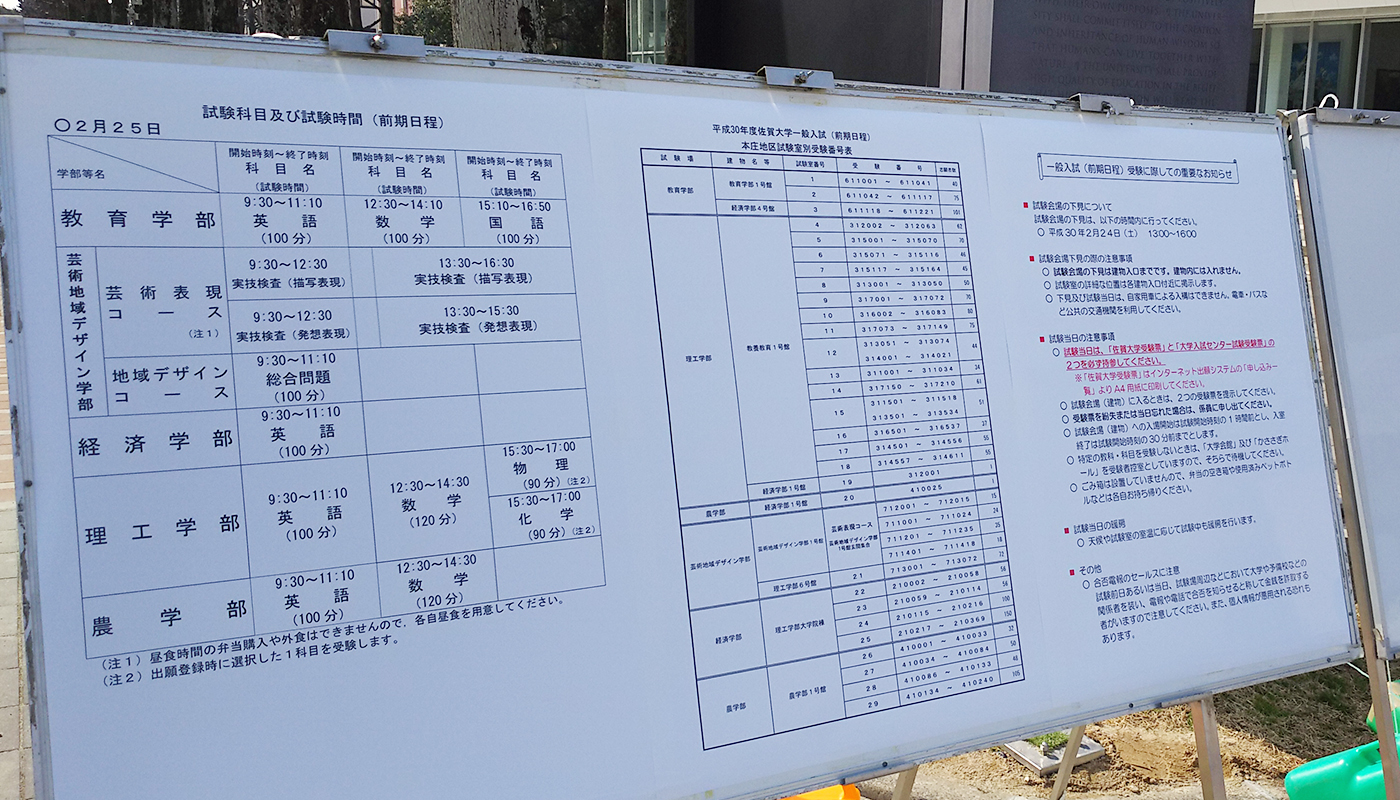 試験科目及び試験時間（前期日程）
〇２月２５日
学部等名
開始時刻～終了時刻 開始時刻～終了時刻 開始時刻～終了時刻
科目名 科目名 科目名
（試験時間） （試験時間） （試験時間）
教育学部
9:30～11:10 12:30～14:10 15:10～16:50
英語 数学 国語
（100分） （100分） （100分）
芸術地域デザイン学部
芸術表現コース
（注１）
9:30～12:30 13:30～16:30
実技検査（描写表現） 実技検査（描写表現）
9:30～12:30 13:30～15:30
実技検査（発想表現） 実技検査（発想表現）
地域デザインコース
9:30～11:10
総合問題
（100分）
経済学部
9:30～11:10
英語
（100分）
理工学部
9:30～11:10
英語
（100分）
12:30～14:30
数学
（120分）
15:30～17:00
物理
（90分）（注２）
15:30～17:00
化学
（90分）（注２）
農学部
9:30～11:10 12:30～14:30
英語 数学
（100分） （120分）
（注１）昼食時間の弁当購入や外食はできませんので、各自昼食を用意してください。
（注２）出願登録時に選択した１科目を受験します。
平成30年度佐賀大学一般入試（前期日程）
本庄地区試験室別受験番号表
試験場 建物名等 試験室番号 受験番号 志願者数
教育学部 教育学部１号館 1 611001 ～ 611041 40
2 611042 ～ 611117 75
経済学部４号館 3 611118 ～ 611221 101
理工学部 教養教育１号館 4 312002 ～ 312063 62
5 315001 ～ 315070 70
6 315071 ～ 315116 46
7 315117 ～ 315164 45
8 313001 ～ 313050 50
9 317001 ～ 317072 70
10 316002 ～ 316083 80
11 317073 ～ 317149 75
12 313051 ～ 313074 44
314001 ～ 314021
13 311001 ～ 311034 34
14 317150 ～ 317210 61
15 311501 ～ 311518 51
313501 ～ 313534
16 316501 ～ 316537 37
17 314501 ～ 314556 55
18 314557 ～ 314611 55
経済学部１号館 19 312001 1
農学部 経済学部１号館 20 410025 1
芸術地域デザイン学部 芸術地域デザイン学部１号館 芸術表現コース
芸術地域デザイン学部
1号館玄関集合
712001 ～ 712015 15
711001 ～ 711024 24
711201 ～ 711235 35
711401 ～ 711418 18
理工学部６号館 21 713001 ～ 713072
経済学部 理工学部大学院棟 22 210002 ～ 210058
23 210059 ～ 210114
24 210115 ～ 210216 100
25 210217 ～ 210369 150
農学部 農学部１号館 26 410001 ～ 410033 32
27 410034 ～ 410084 50
28 410086 ～ 410133 48
29 410134 ～ 410240 105
一般入試（前期日程）受験に際しての重要なお知らせ
■ 試験会場の下見について
試験会場の下見は、以下の時間内に行ってください。
〇 平成30年2月24日（土） 13:00～16:00
■ 試験会場下見の際の注意事項
〇 試験会場の下見は建物入口までです。建物内には入れません。
〇 試験室の詳細な位置は各建物入口付近に掲示します。
〇 下見及び試験当日は、自家用車による入構はできません。電車・バスな
ど公共の交通機関を利用してください。
■ 試験当日の注意事項
〇 試験当日は、「佐賀大学受験票」と「大学入試センター試験受験票」の
２つを必ず持参してください。
※「佐賀大学受験票」はインターネット出願システムの「申し込み一
覧」よりA4用紙に印刷してください。
〇 試験会場（建物）に入るときは、2つの受験票を提示してください。
〇 受験票を紛失または当日忘れた場合は、係員に申し出てください。
〇 試験会場（建物）への入場開始は試験開始時刻の1時間前とし、入室
終了は試験開始時刻の30分前までとします。
〇 特定の教科・科目を受験しないときは、「大学会館」及び「かささぎホ
ール」を受験者控室としていますので、そちらで待機してください。
〇 ごみ箱は設置していませんので、弁当の空き箱や使用済みペットボト
ルなどは各自お持ち帰りください。
■ 試験当日の暖房
〇 天候や試験室の室温に応じて試験中も暖房を行います。
■ その他
〇 合否電報のセールスに注意
試験前日あるいは当日、試験場周辺などにおいて大学や予備校などの
関係者を装い、電報や電話で合否を知らせると称して金銭を詐取する
者がいますので注意してください。また、個人情報が悪用される恐れも
あります。